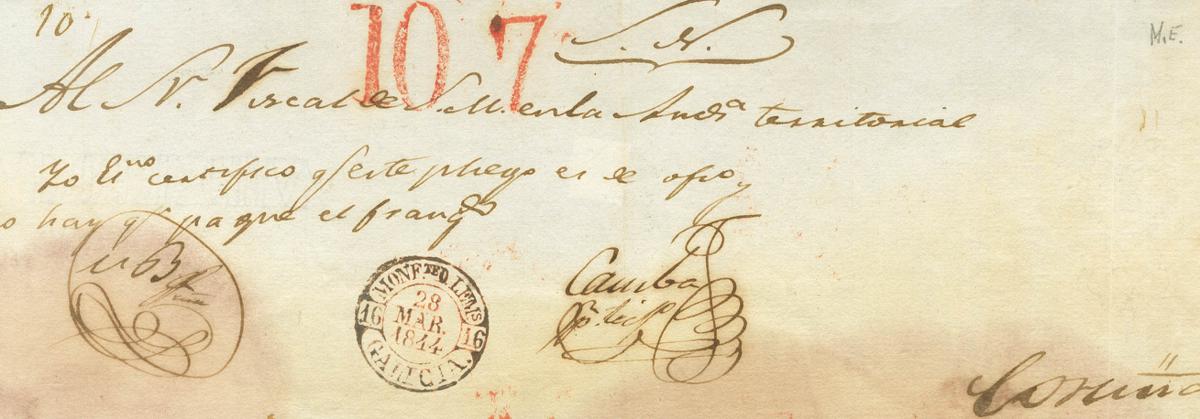 10
10 7
S. N.
M.E.
Al S. Fiscal de S. M. en la Auda territorial
Yo Esno certifico q este pliego es de ofio y
o hay qn pague el franqo
Camba
MONF.TEO LEM.S
16 28 MAR. 1844 16
GALICIA.
Coruña